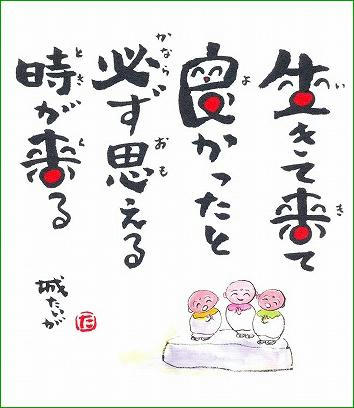 生きて来て
良かったと
必ず思える
時が来る
城たいが